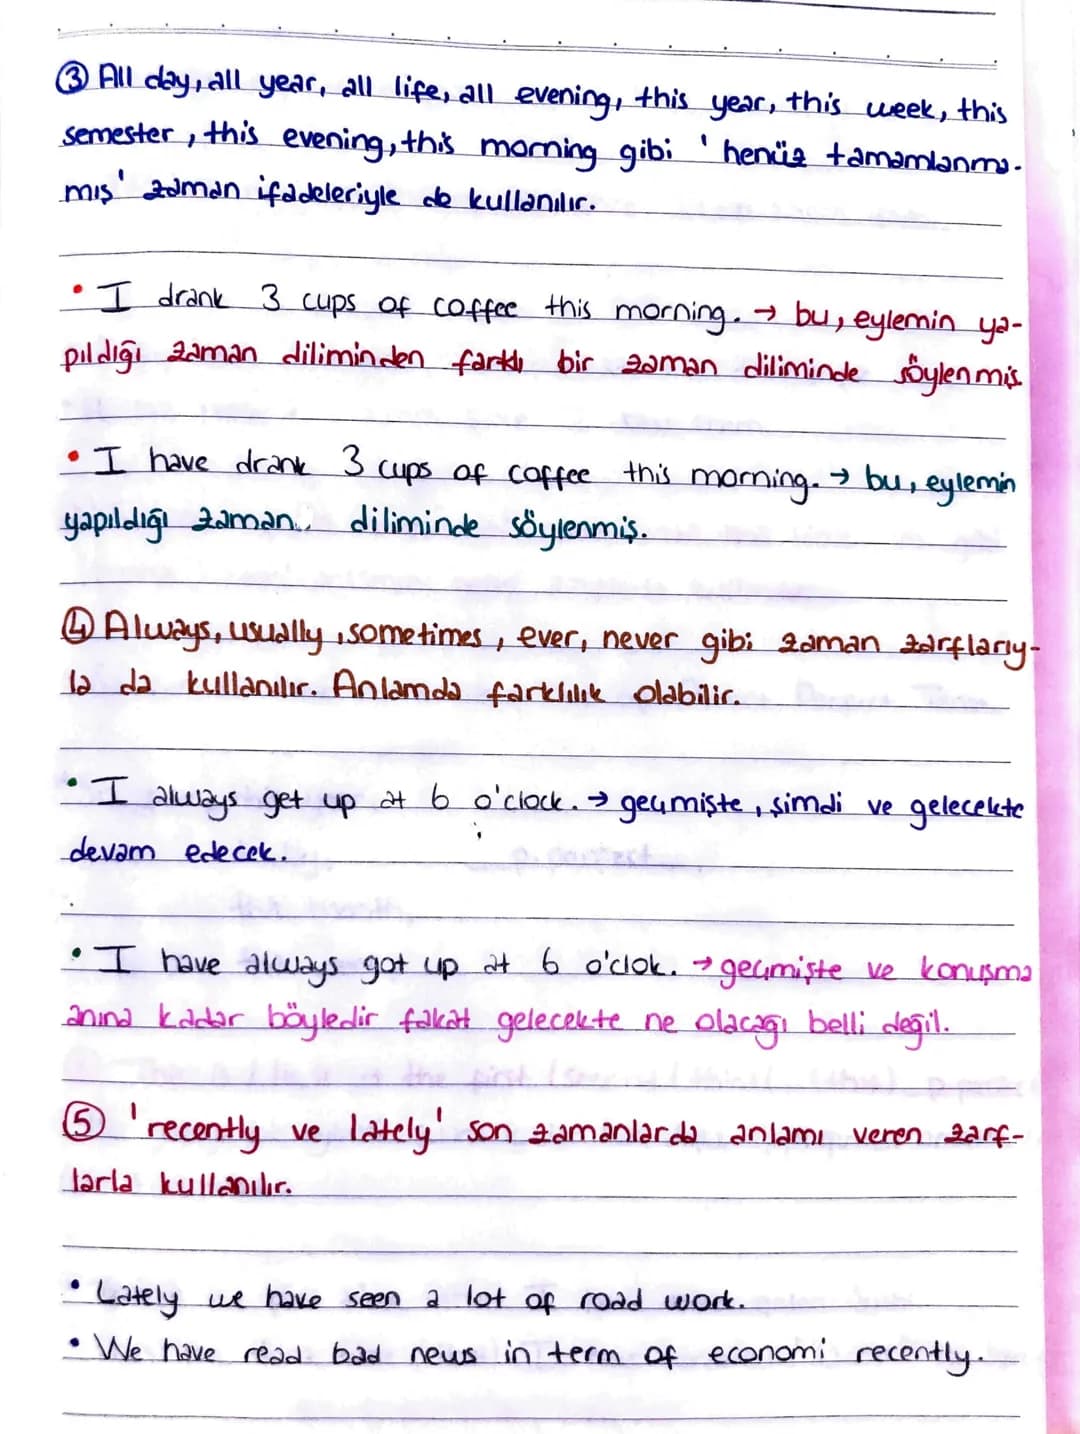 ③ All day, all year, all life, all evening, this year, this week, this
semester, this evening, this morning gibi 'henüz tamamlanma-
mış' zaman ifadeleriyle de kullanılır.
• I drank 3 cups of coffee this morning. → bu, eylemin ya-
pıldığı zaman diliminden farklı bir zaman diliminde söylenmiş
• I have drank 3 cups of coffee this morning. → bu, eylemin
yapıldığı zaman.. diliminde söylenmiş.
④ Always, usually, sometimes, ever, never gibi zaman zarflarıy-
la da kullanılır. Anlamda farklılık olabilir.
• I always get up at 6 o'clock. → geçmişte, şimdi ve gelecekte
devam edecek.
• I have always got up at 6 o'clok. → geçmişte ve konuşma
anına kadar böyledir fakat gelecekte ne olacağı belli değil.
⑤ 'recently ve lately' son zamanlarda anlamı veren zarf-
larla kullanılır.
• Lately we have seen a lot of road work.
• We have read bad news in term of economi recently.